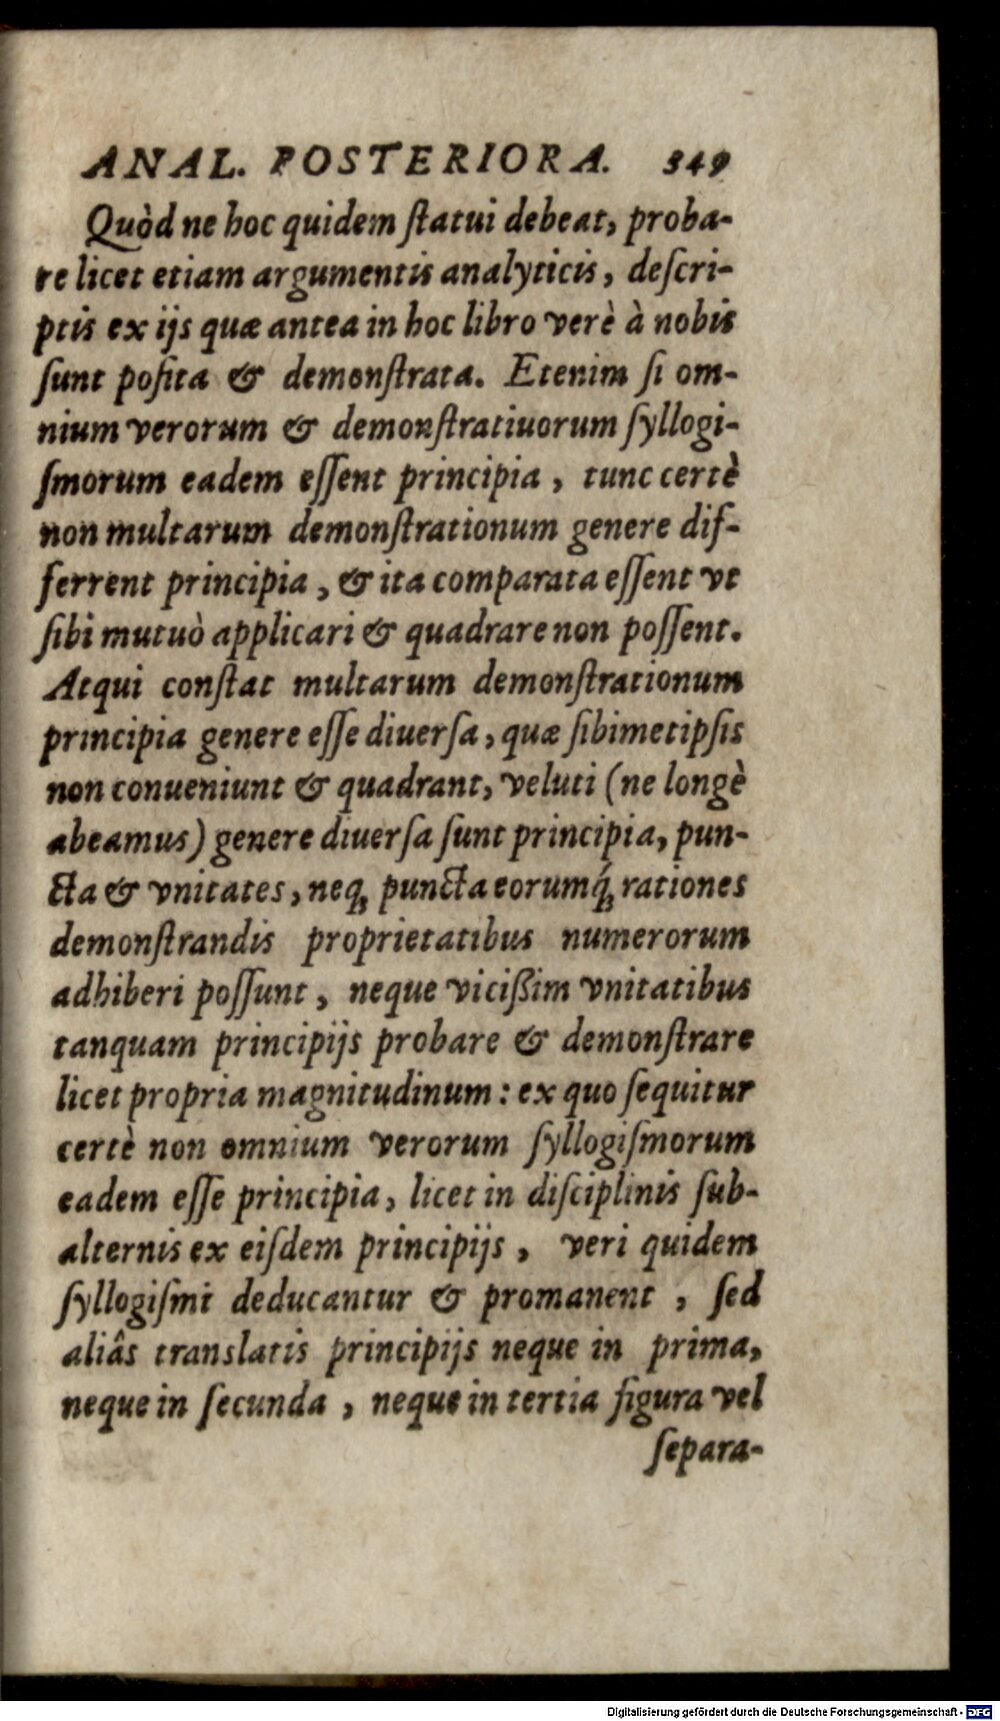 ANAL. POSTERIORA. 349
Quòd ne hoc quidem ſtatui debeat, proba-
re licet etiam argumentis analyticis, deſcri-
ptis ex ijs quæ antea in hoc libro verè à nobis
ſunt poſita & demonſtrata. Etenim ſi om-
nium verorum & demonſtratiuorum ſyllogi-
ſmorum eadem eſſent principia, tunc certè
non multarum demonſtrationum genere dif-
ferrent principia, & ita comparata eſſent vt
ſibi mutuò applicari & quadrare non poſſent.
Atqui conſtat multarum demonſtrationum
principia genere eſſe diuerſa, quæ ſibimetipſis
non conueniunt & quadrant, veluti (ne longè
abeamus) genere diuerſa ſunt principia, pun-
cta & vnitates, neqꝫ puncta eorumq́ꝫ rationes
demonſtrandis proprietatibus numerorum
adhiberi poſſunt, neque vicißim vnitatibus
tanquam principijs probare & demonſtrare
licet propria magnitudinum: ex quo ſequitur
certè non omnium verorum ſyllogiſmorum
eadem eſſe principia, licet in diſciplinis ſub-
alternis ex eiſdem principijs, veri quidem
ſyllogiſmi deducantur & promanent, ſed
aliâs translatis principijs neque in prima,
neque in ſecunda, neque in tertia figura vel
ſepara-
Digitalisierung gefördert durch die Deutsche Forschungsgemeinschaft - DFG